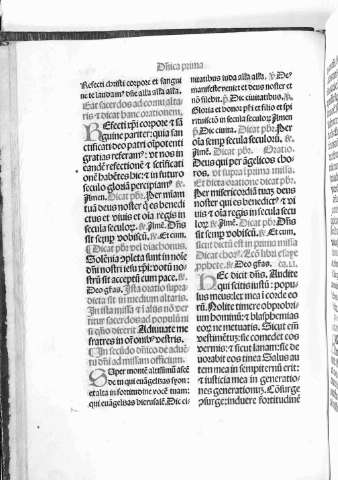 Dñica prima
Refecti christi corpore et sangui
ne te laudamꝰ dñe alla alla alla.
Eat sacerdos ad cornu alta
ris ⁊ dicat hanc orationem.
REfecti xp̄i corpore ⁊ sã
guine pariter: quia san
ctificati deo patri oīpotenti
gratias referamꝰ: vt nos in
eandē refectionē ⁊ sctificati
onē habētes hic: ⁊ in futuro
seculo gloriā percipiamꝰ ℟.
Amen. Dicat pbr̄. Per miam
tuā deus noster q̄ es benedi
ctus et viuis et oīa regis in
secula seculoꝝ. ℟. Amē. Dñs
sit semp̄ vobiscū. ℟. Et cum.
Dicat pbr̄ vel diaconus.
Solēnia cpleta sunt in noīe
dñi nostri iesu xp̄i: votū no
strū sit acceptū cum pace. ℟.
Deo grãs. Ista oratio supra
dicta sit in medium altaris.
In ista missa ⁊ in alijs nō ver
titur sacerdos ad populū ni
si cū dixerit Adiuuate me
fratres in orōnibꝰ vestris.
In secūdo dñico de aduē
tu dñi ad missam officium.
SUper montē altissimū ascē
de tu qui euāgelisas syon:
et alta in fortitudine vocē tuam:
qui euāgelisas hierusalē. Dic ci
uitatibus iuda alla alla. ℣. De
manifeste veniet et deus noster et
nō silebit. ℟. Dic ciuitatibus. ℣.
Gloria et honor pr̄i et filio et spi
ritusctō in secula seculoꝝ Amen
℟. Dic ciuita. Dicat pbr̄. Per
oīa semp̄ secula seculoꝝ. ℟.
Amē. Dicat pbr̄. Oratio.
Deus qui per āgelicos cho
ros. vt supra ī prima missa.
Et dicat pbr̄. ℟. Dicat pbr̄.
Per misericordiā tuaꝫ deus
noster qui es benedictꝰ ⁊ vi
uis ⁊ oīa regis in secula secu
loꝝ. ℟. Amē. Dicat pbr̄. Dñs
sit semp̄ vobiscū. ℟. Et cum.
sicut dictū est in prima missa
Dicat choꝝ. Lcō libri esaye
prophete. ℟. Deo grãs. ca. li.
HEc dicit dñs. Audite
qui scitis iustū: popu
lus meus lex mea ī corde eo
rū. Nolite timere obprobri
um hominū: ⁊ blasphemias
eorꝫ ne metuatis. Sicut em̄
vestimētuꝫ: sic comedet eos
vermis: ⁊ sicut lanam: sic de
uorabit eos tinea Salus au
tem mea in sempiternū erit:
⁊ iusticia mea in generatio
nes generationuꝫ. Cōsurge
cōsurge: induere fortitudinē